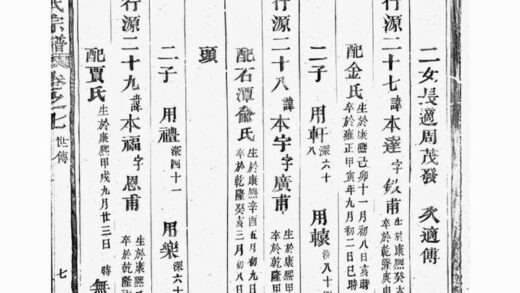 二女長適周茂發 次適傅
行源二十七諱本達字敘甫 生於康熙
卒於乾隆庚申
配金氏 生於康熙己卯十一月初八日亥時
卒於雍正甲寅年九月初二日巳時
二子 用軒 深六十八 用轅 深八十
行源二十八諱本字字廣甫 生於康熙甲
卒於乾隆甲
配石潭俞氏 生於康熙辛酉五月初九日
卒於乾隆癸亥三月初八日
頭
二子 用禮 深四十一 用樂 深六十
行源二十九諱本福字恩甫 生於康熙
卒於乾隆
配賈氏 生於康熙甲戌九月廿三日 時 無
氏宗譜 卷之七 世傳 七